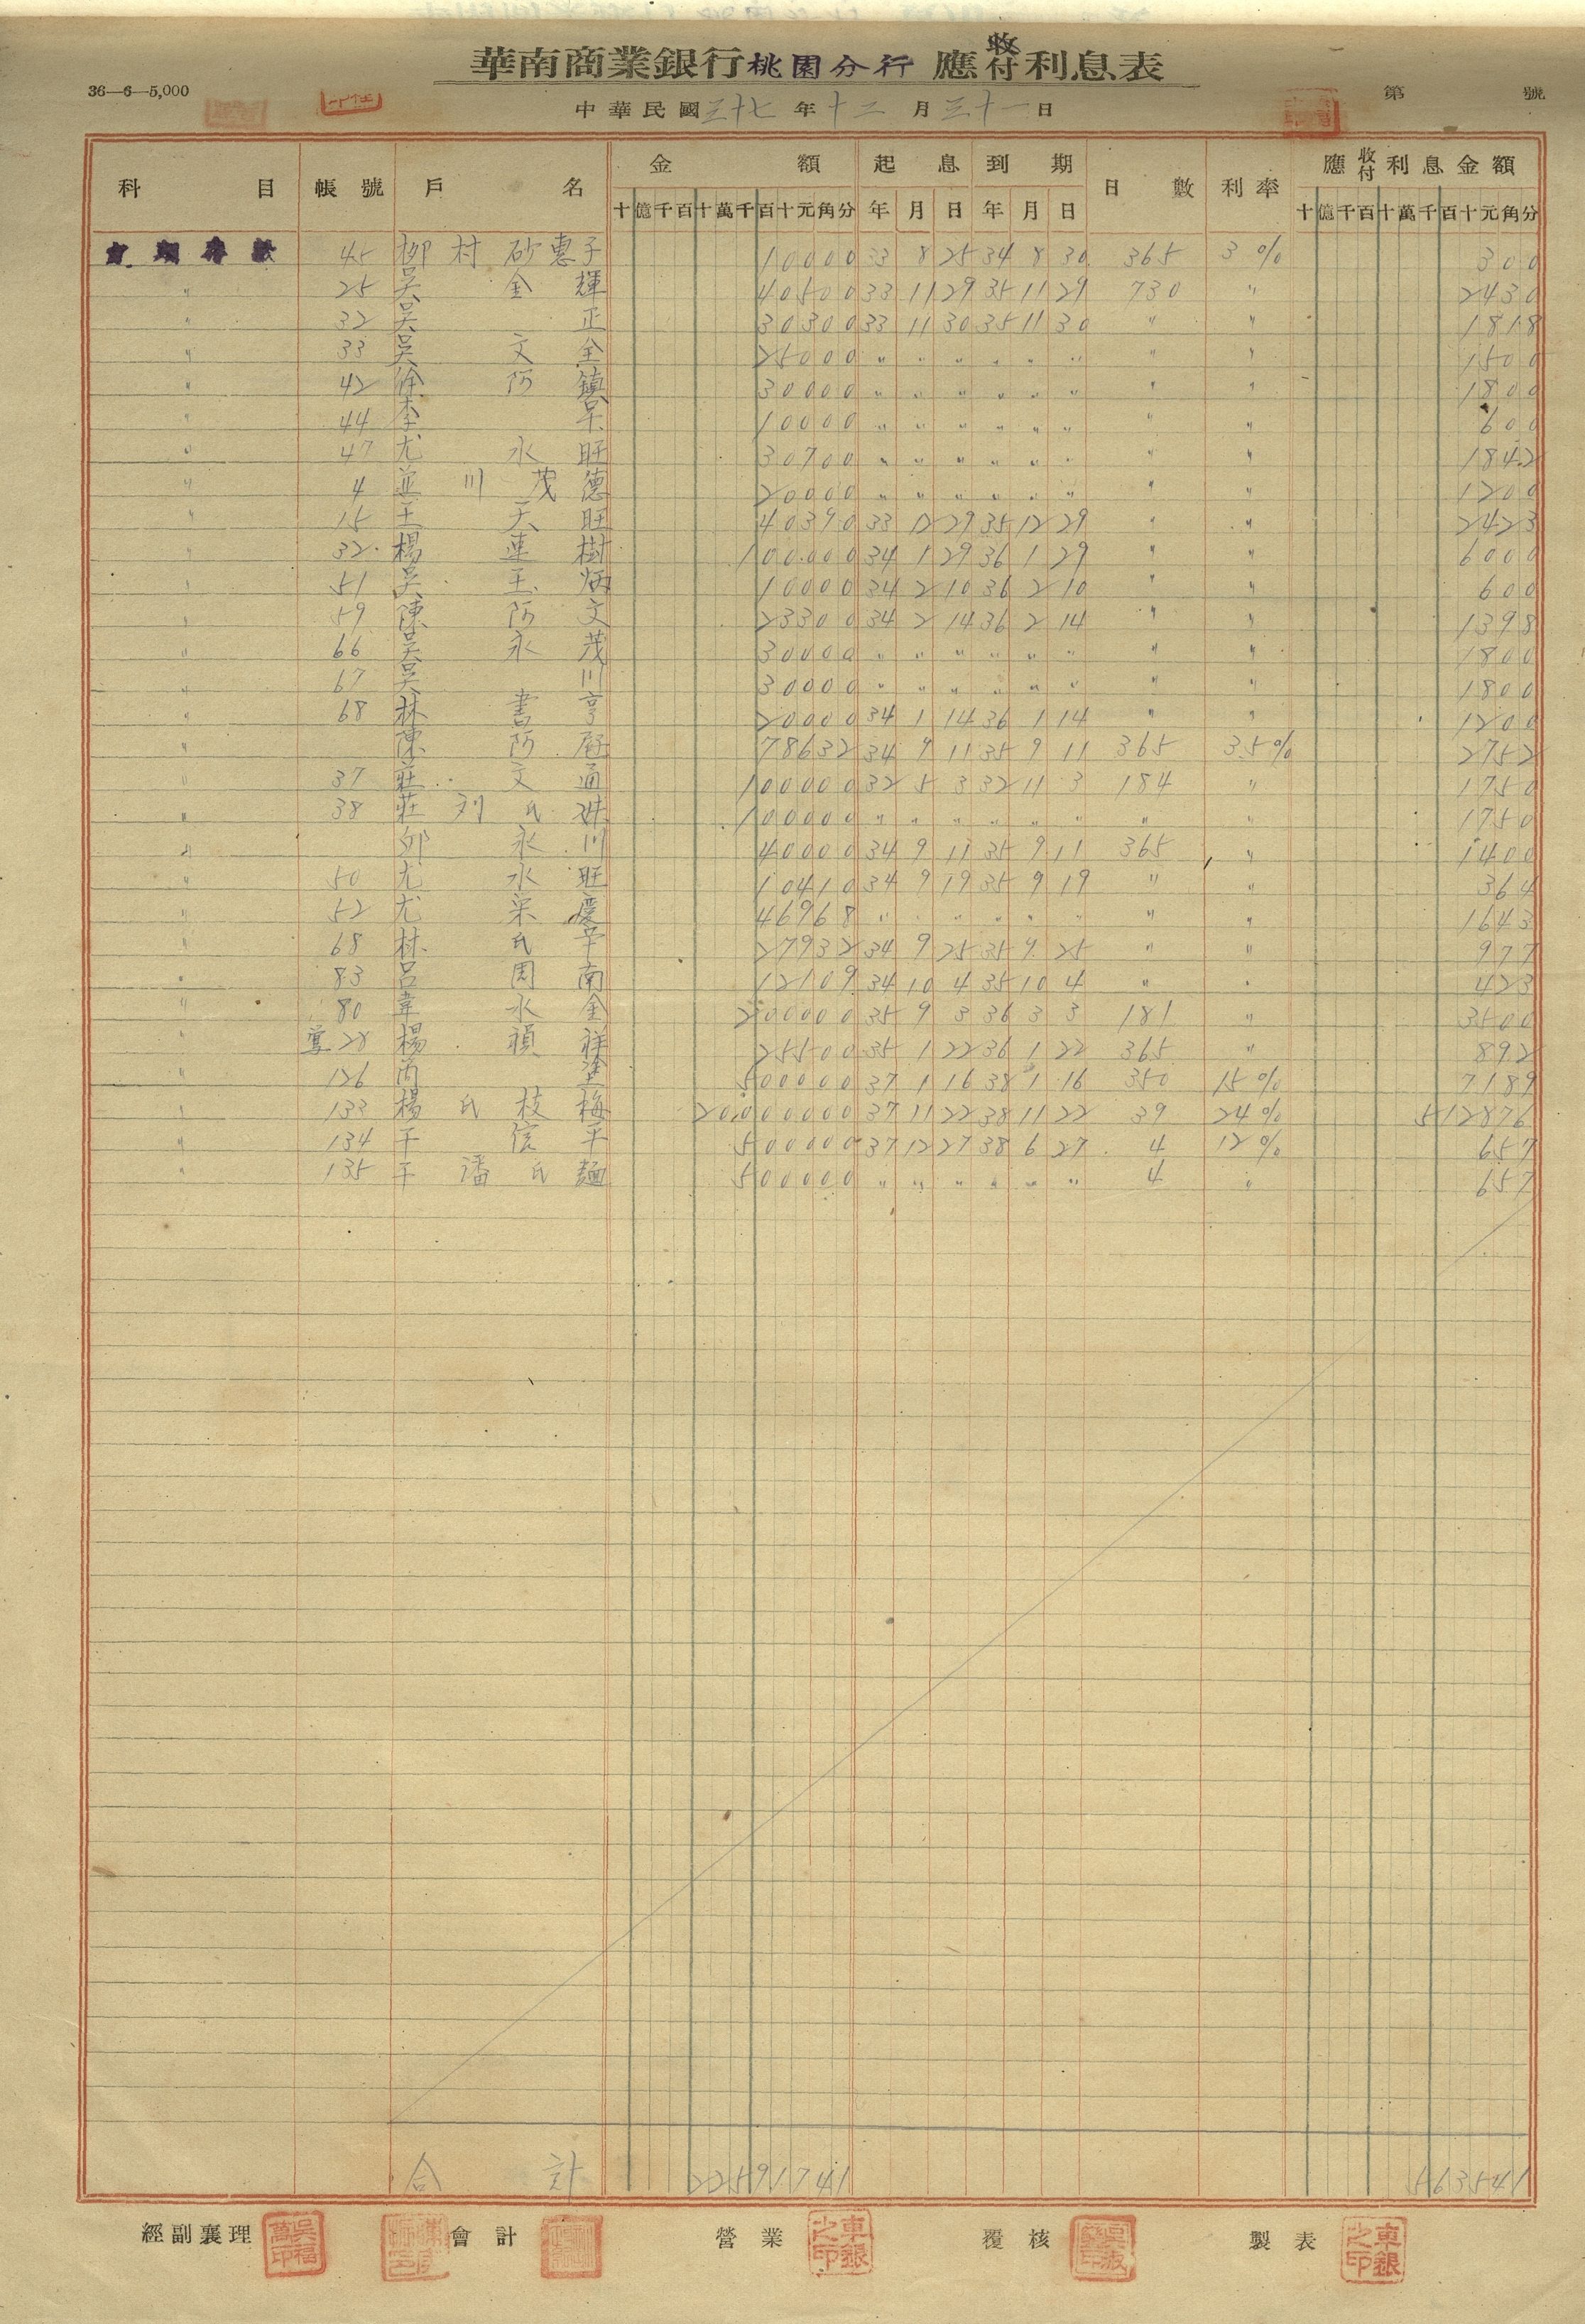 華南商業銀行桃園分行 應收付利息表
36—6—5,000
中華民國三十七年十二月三十一日 第 號
科目 帳號 戶名 金額 起息 到期 日數 利率 應收付利息金額
十億千百十萬千百十元角分 年月日 年月日 十億千百十萬千百十元角分
定期存款 45 柳村砂惠子 10000 33 8 25 34 8 30 365 3% 300
〃 25 吳金輝 40500 33 11 29 35 11 29 730 〃 2430
〃 32 吳正 30300 33 11 30 35 11 30 〃 〃 1818
〃 33 吳文全 25000 〃 〃 〃 〃 〃 〃 〃 〃 1500
〃 42 徐阿鎮 30000 〃 〃 〃 〃 〃 〃 〃 〃 1800
〃 44 李呆 10000 〃 〃 〃 〃 〃 〃 〃 〃 600
〃 47 尤永旺 30700 〃 〃 〃 〃 〃 〃 〃 〃 1842
〃 4 並川茂德 20000 〃 〃 〃 〃 〃 〃 〃 〃 1200
〃 15 王天旺 40390 33 12 29 35 12 29 〃 〃 2423
〃 32 楊連樹 100000 34 1 29 36 1 29 〃 〃 6000
〃 51 吳玉炳 10000 34 2 10 36 2 10 〃 〃 600
〃 59 陳阿文 23300 34 2 14 36 2 14 〃 〃 1398
〃 66 吳永茂 30000 〃 〃 〃 〃 〃 〃 〃 〃 1800
〃 67 吳川 30000 〃 〃 〃 〃 〃 〃 〃 〃 1800
〃 68 林書亨 20000 34 1 14 36 1 14 〃 〃 1200
〃 陳阿 78632 34 9 11 35 9 11 365 3.5% 2752
〃 37 莊文通 100000 32 5 3 32 11 3 184 〃 1750
〃 38 莊刘氏妹 100000 〃 〃 〃 〃 〃 〃 〃 〃 1750
〃 邱永川 40000 34 9 11 35 9 11 365 〃 1400
〃 50 尤水旺 10410 34 9 19 35 9 19 〃 〃 364
〃 52 尤宋慶 46968 〃 〃 〃 〃 〃 〃 〃 〃 1643
〃 68 林氏平 27932 34 9 25 35 9 25 〃 〃 977
〃 83 呂圳南 12109 34 10 4 35 10 4 〃 〃 423
〃 80 韋水金 200000 35 9 3 36 3 3 181 〃 3500
〃 28 楊禎祥 25500 35 1 22 36 1 22 365 〃 892
〃 126 塗 500000 37 1 16 38 1 16 350 15% 7189
〃 133 楊氏枝梅 20000000 37 11 22 38 11 22 39 24% 512876
〃 134 干信平 500000 37 12 27 38 6 27 4 12% 657
〃 135 干潘氏麵 500000 〃 〃 〃 〃 〃 〃 4 〃 657
合計 22591741 563541
經副襄理 吳福萬印 會計 營業 車銀之印 覆核 製表 車銀之印